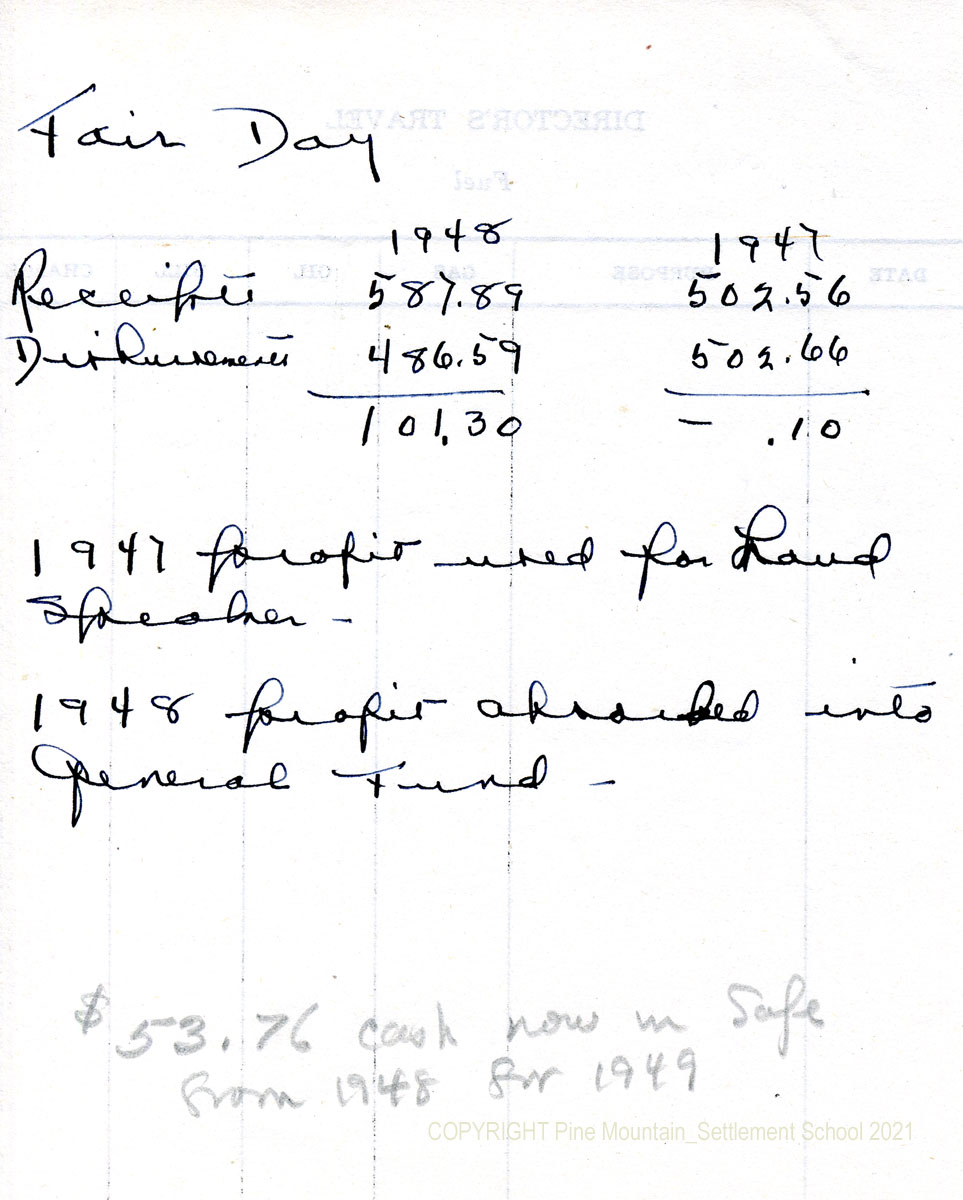 Fair Day
1948 1947
Receipts 587.89 502.56
Disbursements 486.59 502.66
101.30 - .10
1947 profit used for Loud
Speaker -
1948 profit absorbed into
General Fund -
$53.76 cash now in Safe
from 1948 for 1949
COPYRIGHT Pine Mountain_Settlement School 2021
DIRECTOR'S TRAVEL
Fuel
DATE PURPOSE GAS OIL